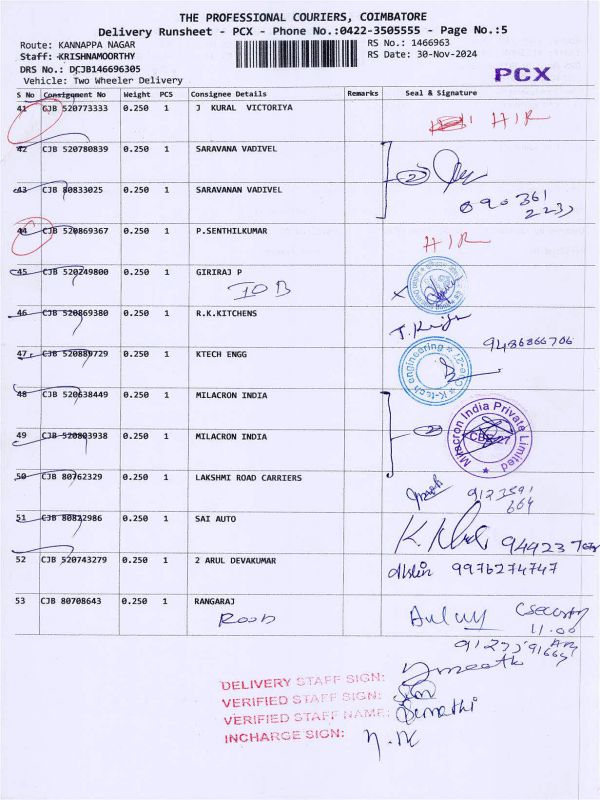 THE PROFESSIONAL COURIERS, COIMBATORE
Delivery Runsheet - PCX - Phone No.:0422-3505555 - Page No.:5
Route: KANNAPPA NAGAR
RS No.: 1466963
Staff: KRISHNAMOORTHY
RS Date: 30-Nov-2024
DRS No.: DCJB146696305
PCX
Vehicle: Two Wheeler Delivery
S No Consignment No Weight PCS Consignee Details Remarks Seal & Signature
41 CJB 520773333 0.250 1 J KURAL VICTORIYA
HIR
42 CJB 520780839 0.250 1 SARAVANA VADIVEL
2
43 CJB 80833025 0.250 1 SARAVANAN VADIVEL
890361
2233
44 CJB 520869367 0.250 1 P.SENTHILKUMAR HIR
45 CJB 520249800 0.250 1 GIRIRAJ P
IOB
46 CJB 520869380 0.250 1 R.K.KITCHENS
9486866706
47 CJB 520889729 0.250 1 KTECH ENGG
K-tech engineering
48 CJB 520638449 0.250 1 MILACRON INDIA
2
Milacron India Private Limited
49 CJB 520803938 0.250 1 MILACRON INDIA
50 CJB 80762329 0.250 1 LAKSHMI ROAD CARRIERS
51 CJB 80822986 0.250 1 SAI AUTO
94423
52 CJB 520743279 0.250 1 2 ARUL DEVAKUMAR
9976274747
53 CJB 80708643 0.250 1 RANGARAJ
11.00
DELIVERY STAFF SIGN:
VERIFIED STAFF SIGN:
VERIFIED STAFF NAME: Sumathi
INCHARGE SIGN: